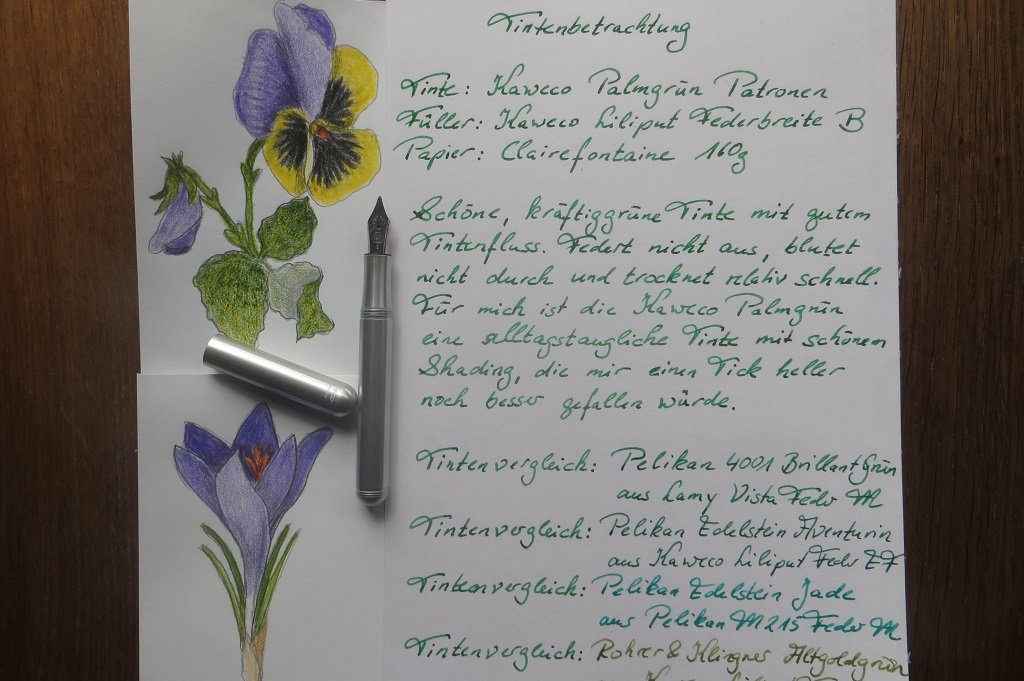 Tintenbetrachtung
Tinte: Kaweco Palmgrün Patronen
Füller: Kaweco Liliput Federbreite B
Papier: Clairefontaine 160g
Schöne, kräftiggrüne Tinte mit gutem
Tintenfluss. Federt nicht aus, blutet
nicht durch und trocknet relativ schnell.
Für mich ist die Kaweco Palmgrün
eine alltagstaugliche Tinte mit schönem
Shading, die mir einen Tick heller
noch besser gefallen würde.
Tintenvergleich: Pelikan 4001 Brillantgrün
aus Lamy Vista Feder M
Tintenvergleich: Pelikan Edelstein Aventurin
aus Kaweco Liliput Feder EF
Tintenvergleich: Pelikan Edelstein Jade
aus Pelikan M215 Feder M
Tintenvergleich: Rohrer & Klingner Altgoldgrün